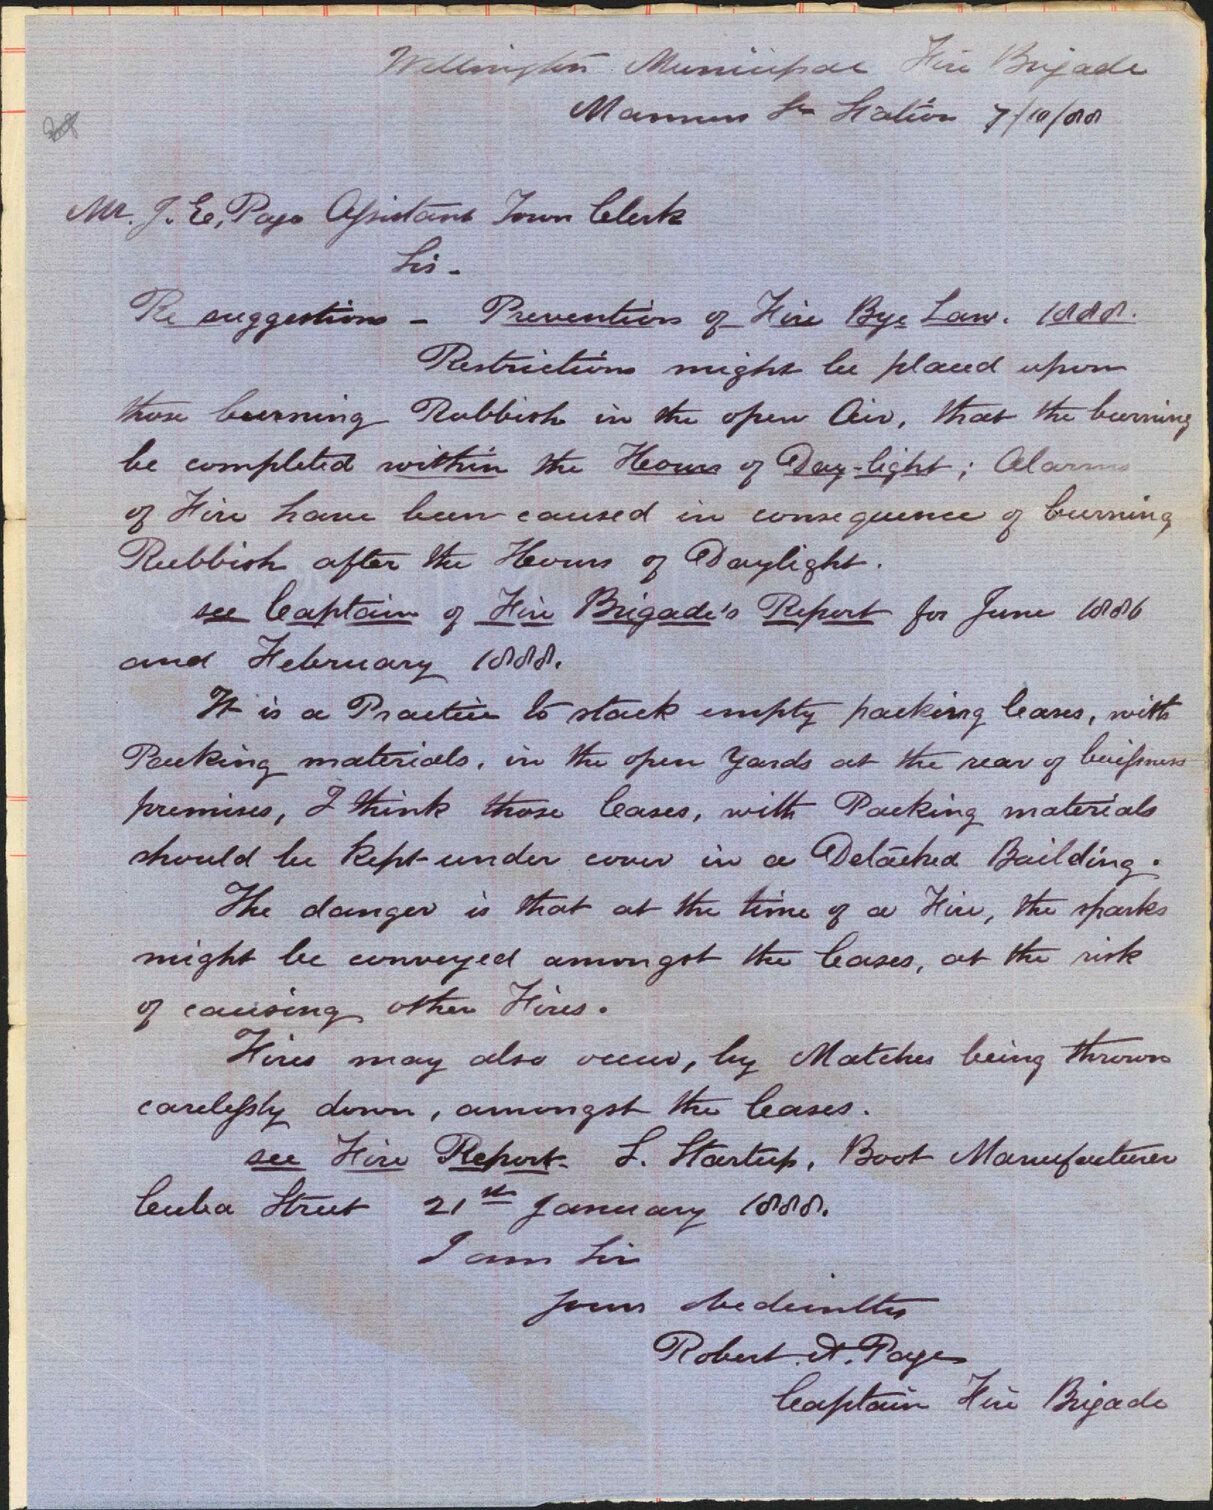 Wellington Municipal Fire Brigade
Manners St Station 7/10/88
Mr. J. E, Page Assistant Town Clerk
Sir -
Re suggestions - Prevention of Fire Bye Law. 1888.
Restrictions might be placed upon
those burning Rubbish in the open Air, that the burning
be completed within the Hours of Day-light; Alarms
of Fire have been caused in consequence of burning
Rubbish after the Hours of Daylight.
see Captain of Fire Brigade's Report for June 1886
and February 1888.
It is a Practice to stack empty packing Cases, with
Packing materials, in the open Yards at the rear of buisness
premises, I think those Cases, with Packing materials
should be kept under cover in a Detached Building.
The danger is that at the time of a Fire, the sparks
might be conveyed amongst the Cases, at the risk
of causing other Fires.
Fires may also occur, by Matches being thrown
carelessly down, amongst the Cases.
see Fire Report. S. Startup, Boot Manufacturer
Cuba Street 21st January 1888.
I am Sir
Yours obedientley
Robert. A. Page
Captain Fire Brigade